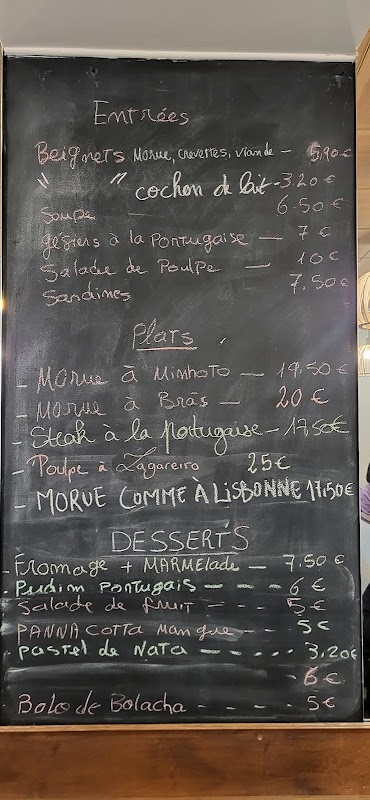 Entrées
Beignets Morue, crevettes, viande - 5,90€
" " cochon de lait - 3.20€
Soupe — 6.50€
gésiers à la Portugaise — 7€
Salade de Poulpe — 10€
Sardines 7,50€
Plats
- Morue à Minhoto — 19.50€
- Morue à Brás — 20€
- Steak à la portugaise - 17,50€
- Poulpe à Lagareiro 25€
- MORUE COMME À LISBONNE 17,50€
DESSERTS
- Fromage + MARMElade — 7.50€
- Pudim Portugais - - - - 6€
- Salade de fruit — - - - 5€
- PANNA COTTA Mangue - - - 5€
- Pastel de Nata - - - - - 3,20€
- 6€
- Bolo de Bolacha - - - - - 5€